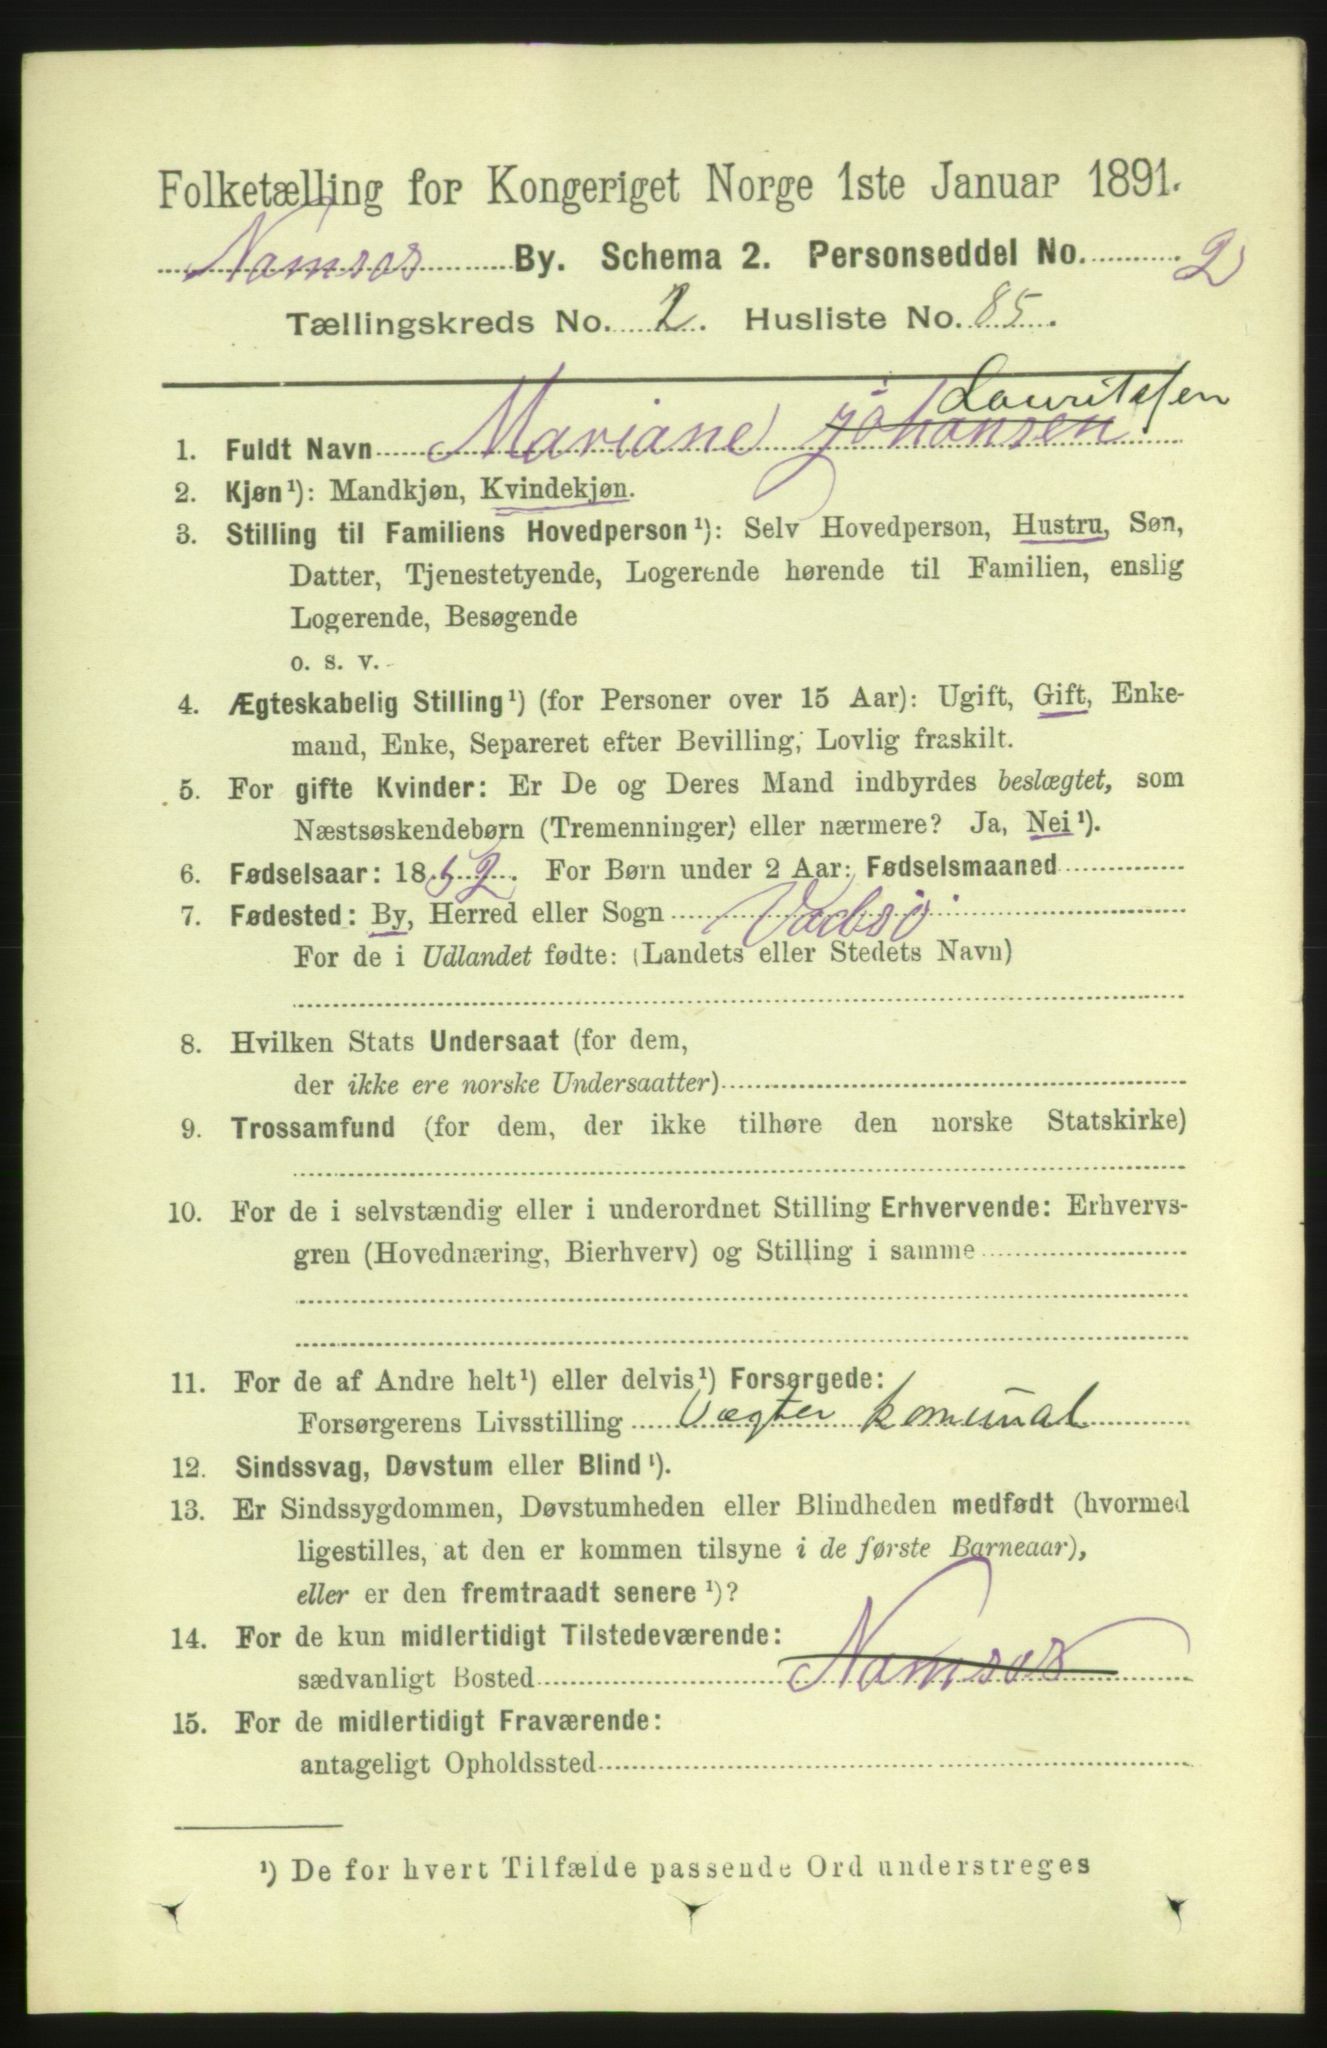 Folketælling for Kongeriget Norge 1ste Januar 1891.
Namsos By. Schema 2. Personseddel No. 2
Tællingskreds No. 2. Husliste No. 85.
Lauritssen
1. Fuldt Navn Mariane Johansen
2. Kjøn¹): Mandkjøn, Kvindekjøn.
3. Stilling til Familiens Hovedperson¹): Selv Hovedperson, Hustru, Søn,
Datter, Tjenestetyende, Logerende hørende til Familien, enslig
Logerende, Besøgende
o. s. v.
4. Ægteskabelig Stilling¹) (for Personer over 15 Aar): Ugift, Gift, Enke-
mand, Enke, Separeret efter Bevilling, Lovlig fraskilt.
5. For gifte Kvinder: Er De og Deres Mand indbyrdes beslægtet, som
Næstsøskendebørn (Tremenninger) eller nærmere? Ja, Nei¹).
6. Fødselsaar: 1852. For Børn under 2 Aar: Fødselsmaaned
7. Fødested: By, Herred eller Sogn Vadsø
For de i Udlandet fødte: (Landets eller Stedets Navn)
8. Hvilken Stats Undersaat (for dem,
der ikke ere norske Undersaatter)
9. Trossamfund (for dem, der ikke tilhøre den norske Statskirke)
10. For de i selvstændig eller i underordnet Stilling Erhvervende: Erhvervs-
gren (Hovednæring, Bierhverv) og Stilling i samme
11. For de af Andre helt¹) eller delvis¹) Forsørgede:
Forsørgerens Livsstilling Vægter komunal
12. Sindssvag, Døvstum eller Blind¹).
13. Er Sindssygdommen, Døvstumheden eller Blindheden medfødt (hvormed
ligestilles, at den er kommen tilsyne i de første Barneaar),
eller er den fremtraadt senere¹)?
14. For de kun midlertidigt Tilstedeværende:
sædvanligt Bosted Namsos
15. For de midlertidigt Fraværende:
antageligt Opholdssted
¹) De for hvert Tilfælde passende Ord understreges